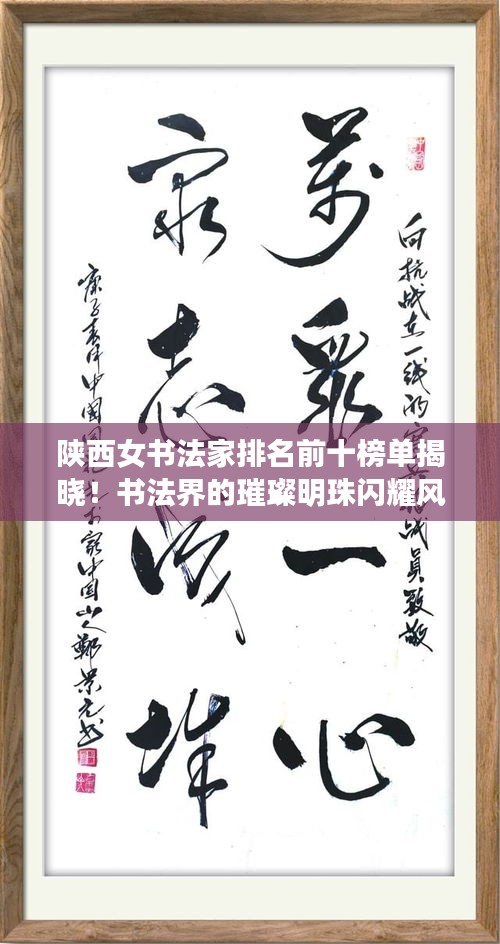 向抗战在一线的战員致敬
萬眾一心
众志成城
庚子春月中国书家中国山人鄭景元书
陕西女书法家排名前十榜单揭
晓！书法界的璀璨明珠闪耀风